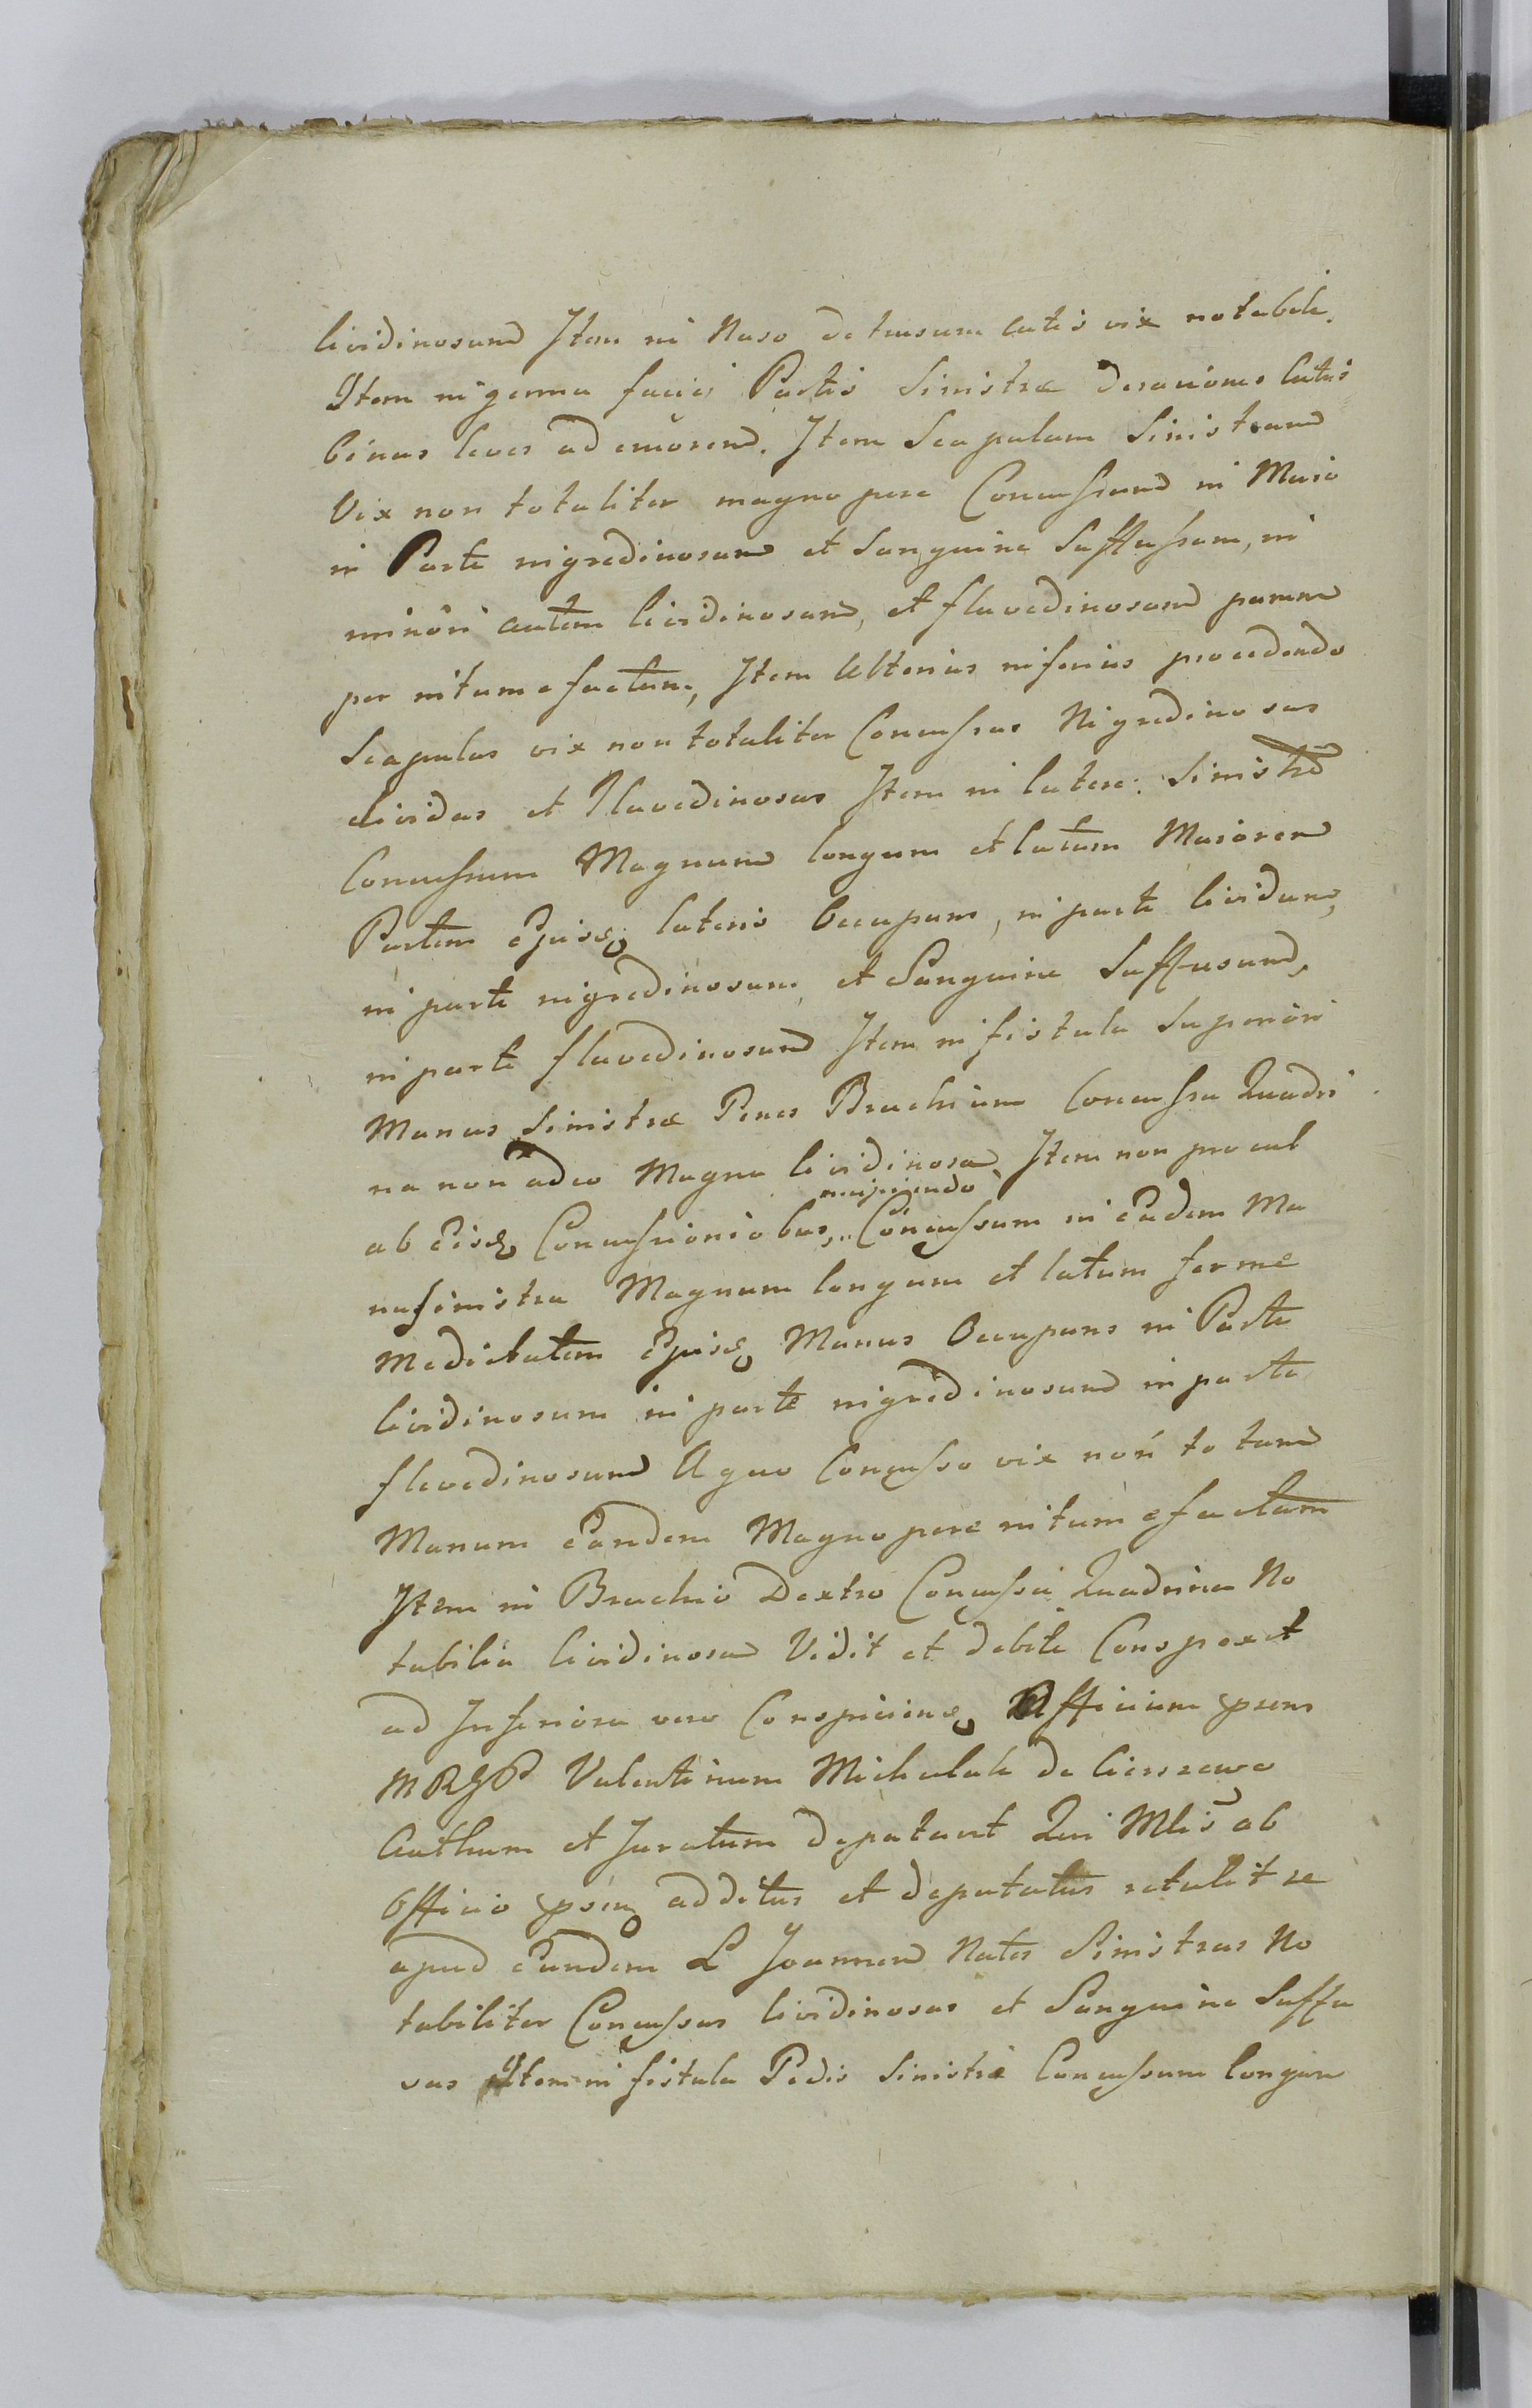 lividinosum Item in Naso detrusum cutis vix notabile.
Item in genua faciei Partis Sinistræ derasiones Cutis
binas leves ad cruorem. Item Scapulam Sinistram
Vix non totaliter magnopere Concussam in Maio
ri Parte nigredinosam et Sanguine Suffussam, in
minori autem lividinosam, et flavedinosam parum
per intumefactam, Item Ulterius inferius procedendo
Scapulas vix non totaliter Concussas Nigredinosas
lividas et Flavedinosas Item in latere Sinistro
Concussum Magnum longum et latum Maiorem
Partem Ejusdem lateris Occupans, in parte lividum,
in parte nigredinosum et Sanguine Suffusum,
in parte flavedinosum Item in fistula Superiori
Manus Sinistræ Penes Brachium Concussa Quadri
na non adeo Magna lividinosa Item non procul
ab Eisdem Concussionibus, incipiendo Concussum in Eadem Ma
nu sinistra Magnum longum et latum ferme
Medietatem Ejusdem Manus Occupans in Parte
lividinosum in parte nigredinosum in parte
flavedinosum A quo Concusso vix non totam
Manum Eandem Magnopere intumefactam
Item in Brachio Dextro Concussa Quadrina No
tabilia lividinosa Vidit et debite Conspexit
ad Inferiora vero Conspicienda Officium præsens
MRGP Valentinum Michalak de Cieszewo
Cuthum et Juratum deputavit Qui Mlis ab
Officio præsenti additus et deputatus retulit se
apud Eundem L Joannem Nates Sinistras No
tabiliter Concussas lividinosas et Sanguine Suffu
sas Item in fistula Pedis Sinistri Concussum longum